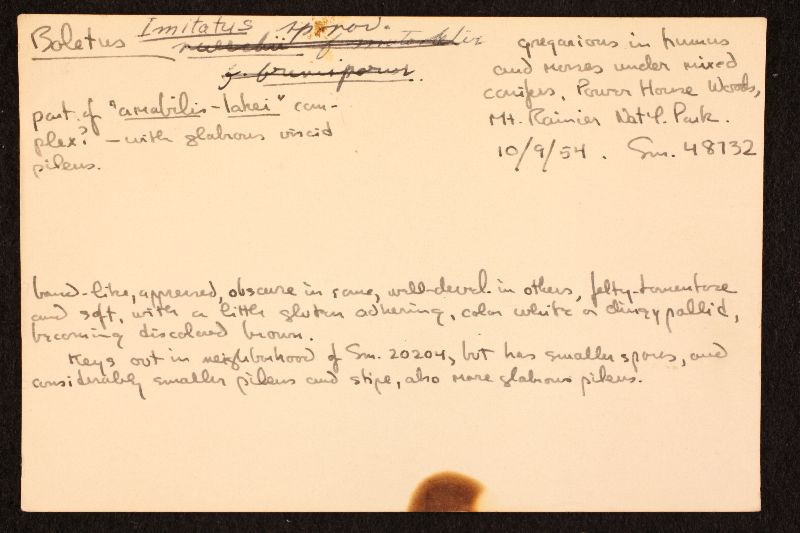 Boletus Imitatus sp. nov.
f. brunisporus.
part of "amabilis-lakei" com-
plex? – with glabrous viscid
pileus.
gregarious in humus
and mosses under mixed
conifers, Power House Woods,
Mt. Rainier Nat'l. Park.
10/9/54. Sm. 48132
band-like, appressed, obscure in some, well-devel. in others, felty-tomentose
and soft, with a little gluten adhering, color white or dingy pallid,
becoming discolored brown.
Keys out in neighborhood of Sm. 20204, but has smaller spores, and
considerably smaller pileus and stipe, also more glabrous pileus.